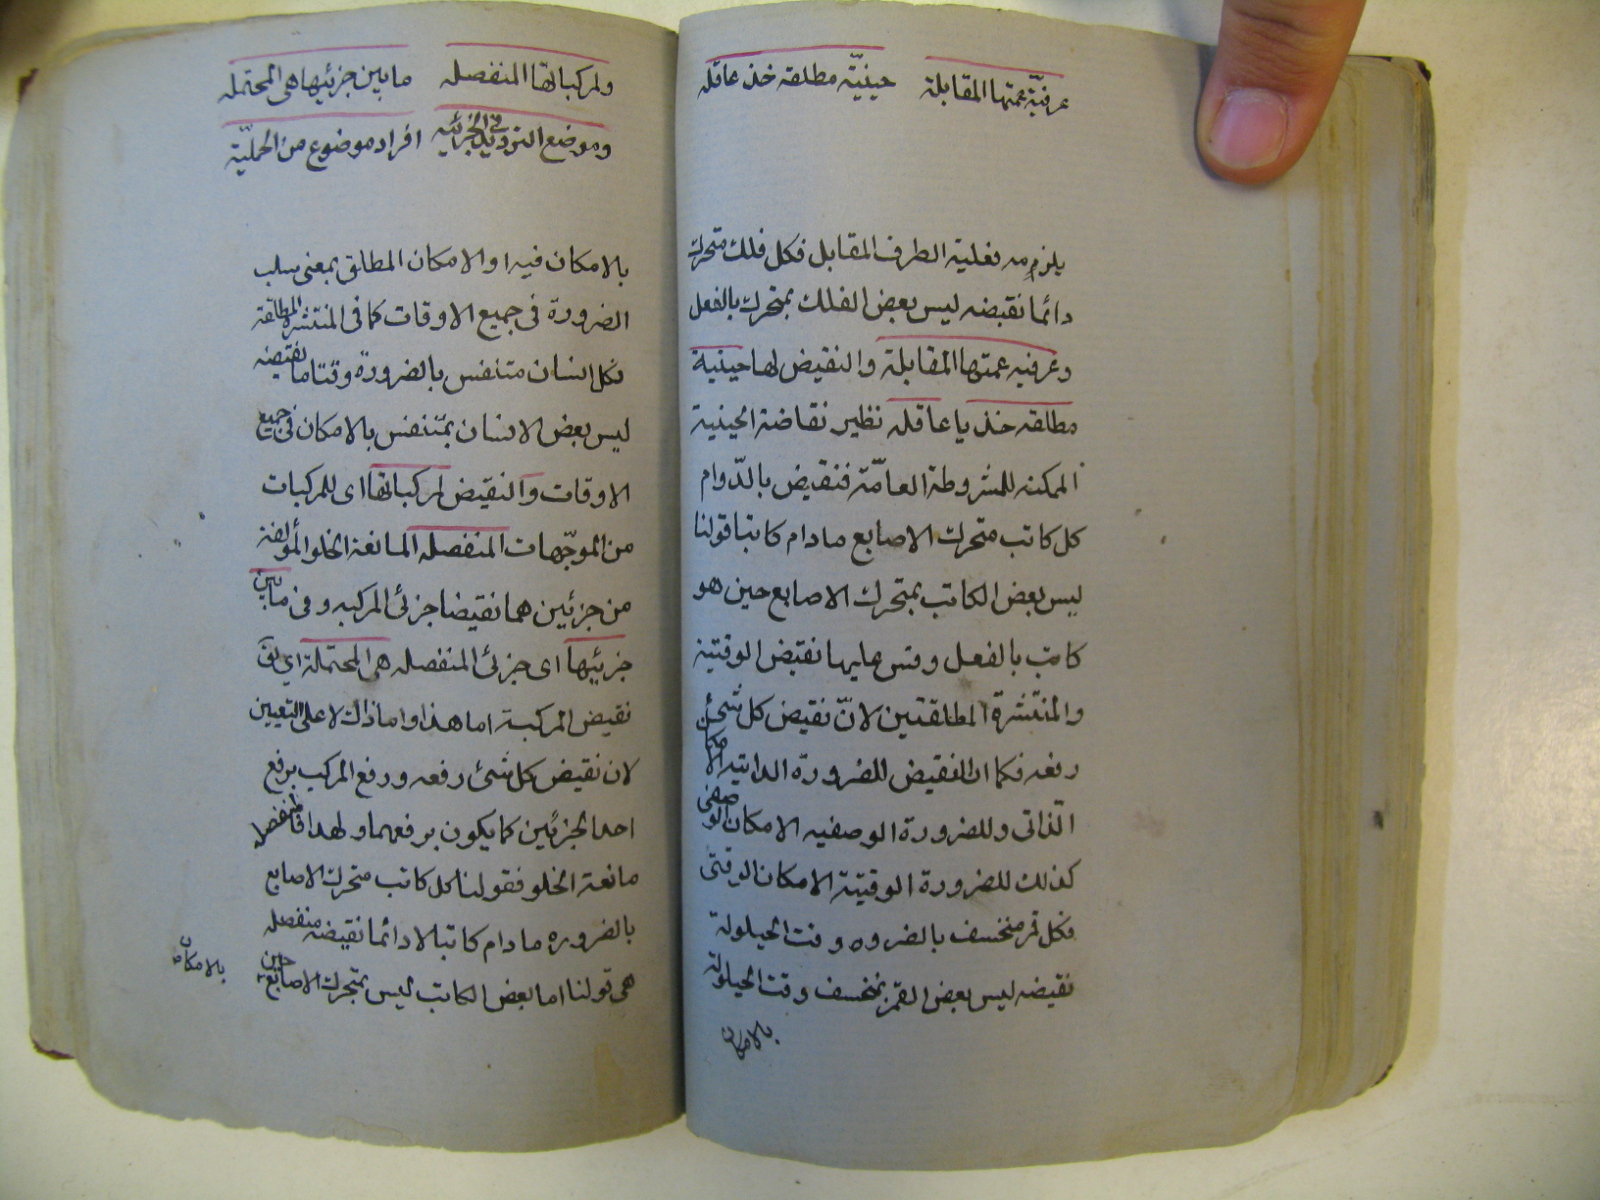 عرفيّة عمتها المقابلة حينيّة مطلقه خذ عاقله
يلزمه فعلية الطرف المقابل فكل فلك متحرك
دائما نقيضه ليس بعض الفلك بمتحرك بالفعل
وعرفيه عمتها المقابلة والنقيض لها حينية
مطلقه خذ يا عاقله نظير نقاضة الحينية
الممكنه للمشروطة العامّة فنقيض بالدّوام
كل كاتب متحرك الاصابع مادام كاتبا قولنا
ليس بعض الكاتب بمتحرك الاصابع حين هو
كاتب بالفعل وقس عليها نقيض الوقتية
والمنتشرة المطلقتين لانّ نقيض كل شئ
رفعه فكما ان النقيض للضرورة الذاتيه الامكان
الذّاتى وللضرورة الوصفيه الامكان الوصفى
كذلك للضرورة الوقتية الامكان الوقتى
فكل قمر منخسف بالضروره وقت الحيلولة
نقيضه ليس بعض القمر بمنخسف وقت الحيلولة
بالامكان
ولمركباتها المنفصله ما بين جزئيها هى المحتمله
وموضع الترديد فى الجزئيه افراد موضوع من الحمليّة
بالامكان فيه او الامكان المطلق بمعنى سلب
الضرورة فى جميع الاوقات كما فى المنتشرة المطلقة
فكل انسان متنفس بالضرورة وقتا ما نقيضه
ليس بعض الانسان بمتنفس بالامكان فى جميع
الاوقات والنقيض لمركباتها اى للمركبات
من الموجّهات المنفصله المانعة الخلو المؤلفة
من جزئين هما نقيضا جزئى المركبه وفى ما بين
جزئيها اى جزئى المنفصله هى المحتملة اي
نقيض المركبة اما هذا واما ذاك لا على التعيين
لان نقيض كل شئ رفعه ورفع المركب برفع
احد الجزئين كما يكون برفعهما ولهذا فالمنفصله
مانعة الخلو فقولنا كل كاتب متحرك الاصابع
بالضروره مادام كاتبا لا دائما نقيضه منفصله
هى قولنا اما بعض الكاتب ليس بمتحرك الاصابع حين
بالامكان